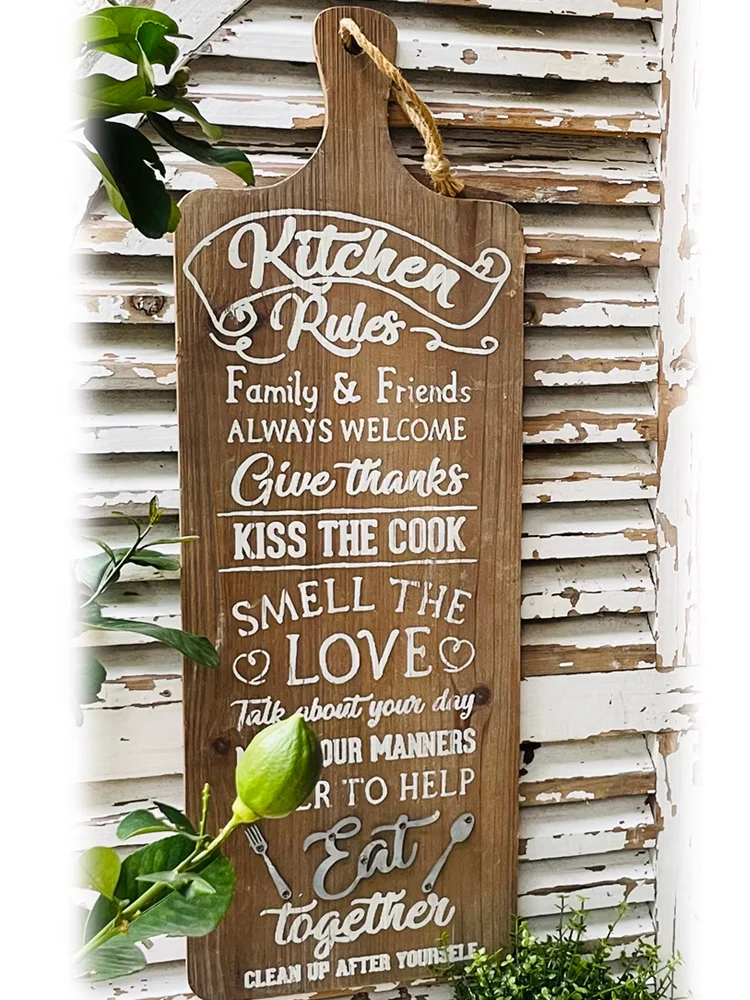 Kitchen
Rules
Family & Friends
ALWAYS WELCOME
Give thanks
KISS THE COOK
SMELL THE
LOVE
Talk about your day
MANNERS
TO HELP
Eat
together
CLEAN UP AFTER YOURSELF